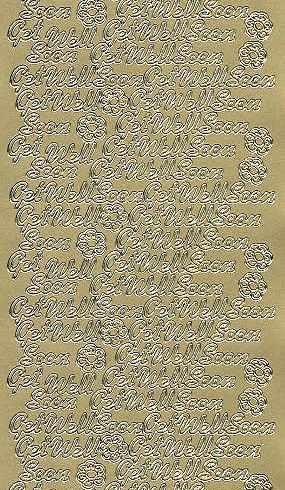 Soon Get Well Soon
Get Well Get Well Soon
Soon Get Well Soon
Get Well Soon Get Well Soon
Get Well Get Well Soon
Soon Get Well Soon
Get Well Get Well Soon
Soon Get Well Soon
Get Well Soon Get Well Soon
Get Well Get Well Soon
Soon Get Well Soon
Get Well Get Well Soon
Soon Get Well Soon
Get Well Soon Get Well Soon
Get Well Get Well Soon
Soon Get Well Soon
Get Well Get Well Soon
Soon Get Well Soon
Get Well Soon Get Well Soon
Get Well Get Well Soon
Soon Get Well Soon